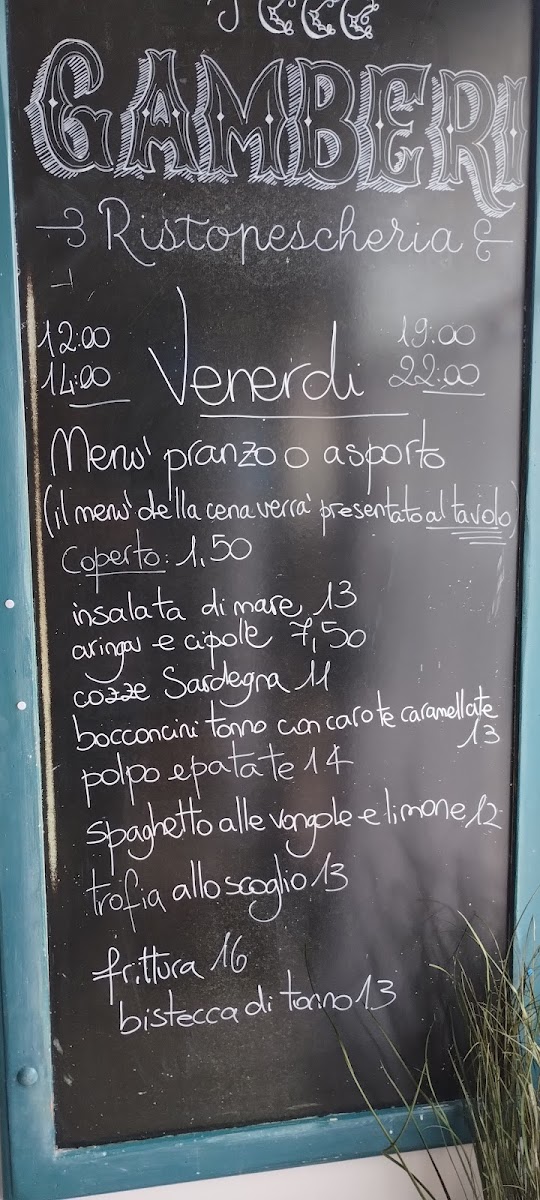 GAMBERI
Ristopescheria
12:00
14:00
Venerdi
19:00
22:00
Menu' pranzo o asporto
(il menu' della cena verra' presentato al tavolo)
Coperto: 1,50
insalata di mare 13
aringa e cipolle 7,50
cozze Sardegna 11
bocconcini tonno con carote caramellate
13
polpo e patate 14
spaghetto alle vongole e limone 12
trofia allo scoglio 13
frittura 16
bistecca di tonno 13